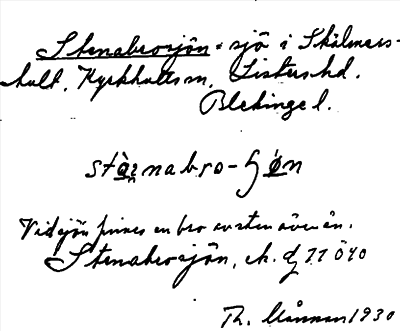 Stenabrosjön = sjö i Skälmers-
hult, Kyrkhults sn, Listers hd.
Blekinge l.
stànabro-ʃøn
Vid sjön finnes en bro av sten över ån.
Stenabrosjön, ek. 11 Ö 40
Th. 1930